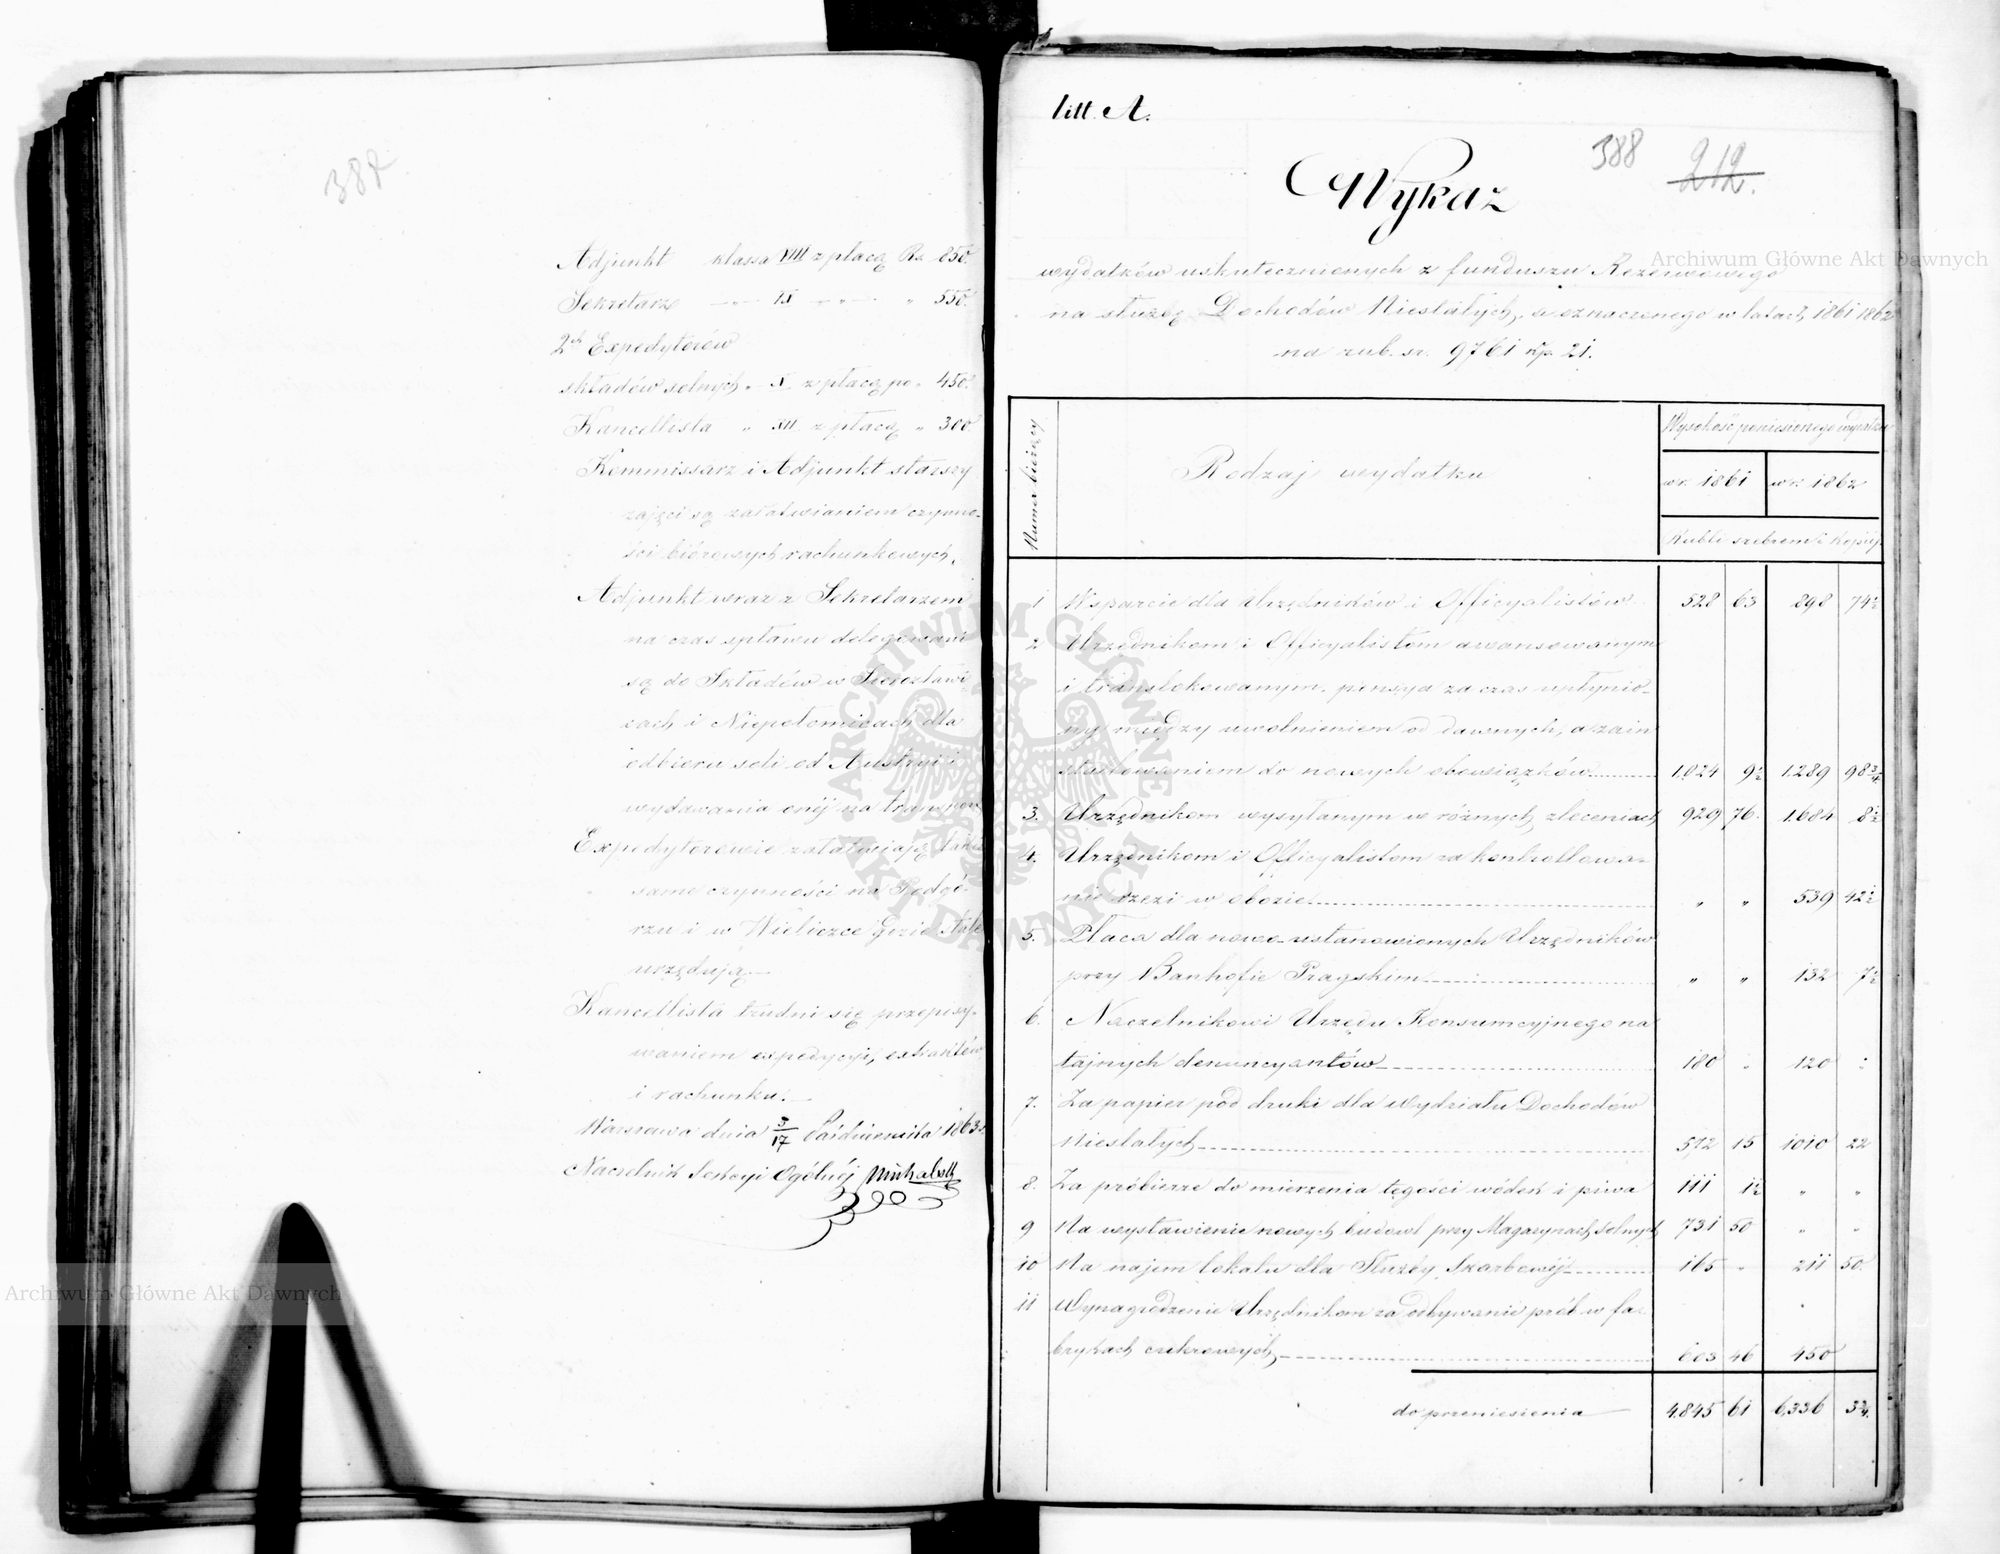 387
Adjunkt klassa VIII z płacą Rs 850.
Sekretarz —„— IX —„— „ 550.
2ch Expedytorów
składów solnych „ X z płacą po „ 450.
Kancellista „ XII z płacą „ 300
Kommissarz i Adjunkt starszy
zajęci są załatwianiem czynno-
ści biórowych rachunkowych.
Adjunkt wraz z Sekretarzem
na czas spławu delegowani
są do Składów w Sierosławi-
cach i Niepołomicach dla
odbioru soli od Austryi i
wydawania onéj na transport
Expedytorowie załatwiają takie
same czynności na Podgó-
rzu i w Wieliczce gdzie stale
urzędują.—
Kancellista trudni się przepisy-
waniem expedycyi, extraktów
i rachunku.—
Warszawa dnia 5/17 Października 1863 r.
Naczelnik Sekcyi Ogólnéj
litt. A.
388 212.
Wykaz
wydatków uskutecznionych z funduszu Rezerwowego
na służbę Dochodów Niestałych, a oznaczonego w latach 1861 1862
na rub. sr. 9761 kp. 21.
Numer bieżący
Rodzaj wydatku
Wysokość poniesionego wydatku
w r. 1861 w r. 1862
Rubli srebrem i kopiejk
1 Wsparcie dla Urzędników i Officyalistów 528 63 898 74½
2 Urzędnikom i Officyalistom awansowanym
i translokowanym, pensya za czas upłynio-
ny między uwolnieniem od dawnych, a zain
stallowaniem do nowych obowiązków 1.024 9½ 1.289 98¾
3. Urzędnikom wysyłanym w różnych zleceniach 929 76. 1.684 8½
4. Urzędnikom i Officyalistom za kontrollowa-
nie rzezi w obozie „ „ 539 42½
5. Płaca dla nowo-ustanowionych Urzędników
przy Banhofie Pragskim „ „ 132 7½
6. Naczelnikowi Urzędu Konsumcyjnego na
tajnych denuncyantów 180 „ 120 „
7. Za papier pod druki dla Wydziału Dochodów
Niestałych 572 15 1010 22
8. Za próbierze do mierzenia tęgości wódek i piwa 111 1½ „ „
9 Na wystawienie nowych budowl przy Magazynach Solnych 731 50 „ „
10 Na najem lokalu dla Służby Skarbowéj 165 „ 211 50.
11 Wynagrodzenie Urzędnikom za odbywanie prób w fa-
brykach cukrowych 603 46 450
do przeniesienia 4.845 61 6,336 3¾.